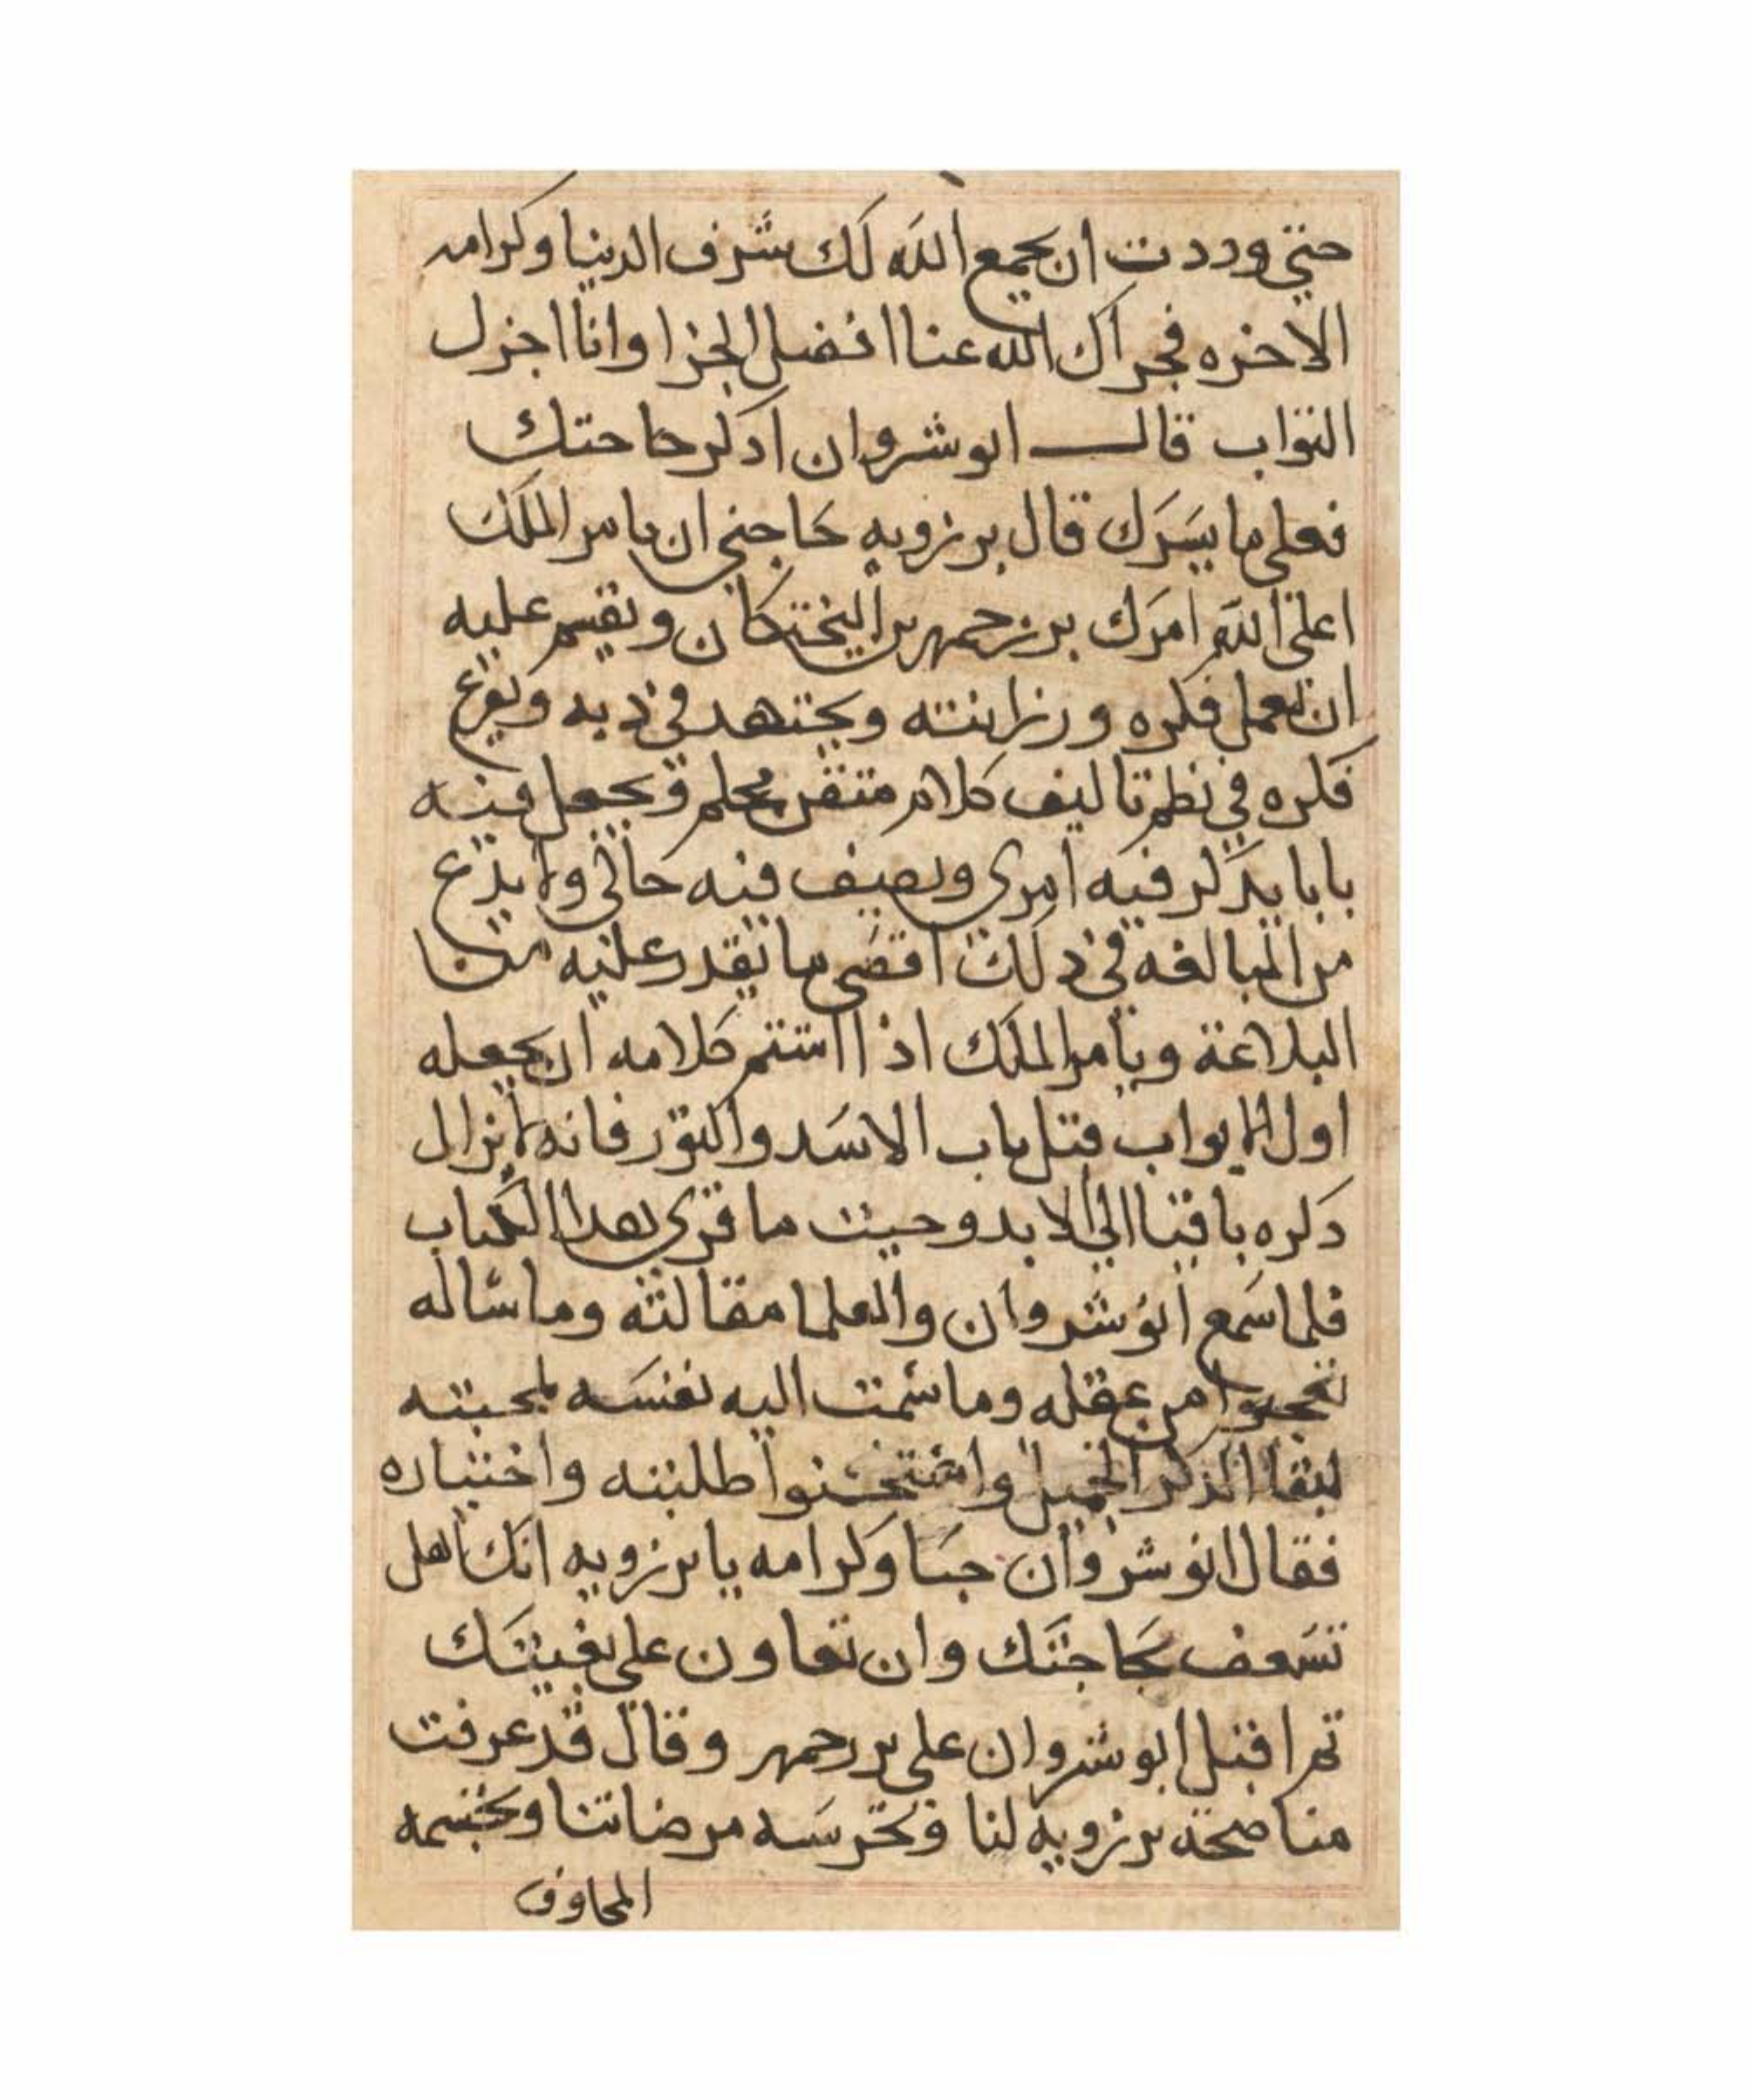 حتي وددت ان يجمع الله لك شرف الدنيا وكرامه
الاخره فجزاك الله عنا افضل الجزا وانا اجزل
الثواب قال انوشروان اذكر حاجتك
فعلي ما يسرك قال برزويه حاجتي ان يامر الملك
اعلي الله امرك بزرجمهر بن البختكان ويقسم عليه
ان يعمل فكره ورزانته ويجتهد في ذيه ويفرغ
فكره في نظم تاليف كلام متقن محكم ويجعل فيه
بابا يذكر فيه امري ويصف فيه حالي ولا يدع
من المبالغه في ذلك اقصي ما يقدر عليه من
البلاغة ويامر الملك اذا استتم كلامه ان يجعله
اول الابواب قبل باب الاسد والثور فانه لا يزال
ذكره باقيا الي الابد وحيث ما قري هذا الكتاب
فلما سمع انوشروان والعلما مقالته وما ساله
تعجبوا من عقله وما سمت اليه نفسه لمحبته
لبقا الذكر الجميل واستحسنوا طلبته واختياره
فقال انوشروان حبا وكرامه يا برزويه انك اهل
تسعف بحاجتك وان تعاون علي بغيتك
ثم اقبل انوشروان علي بزرجمهر وقال قد عرفت
مناصحة برزويه لنا وتحرسه مرضاتنا وتجشمه
المخاوف